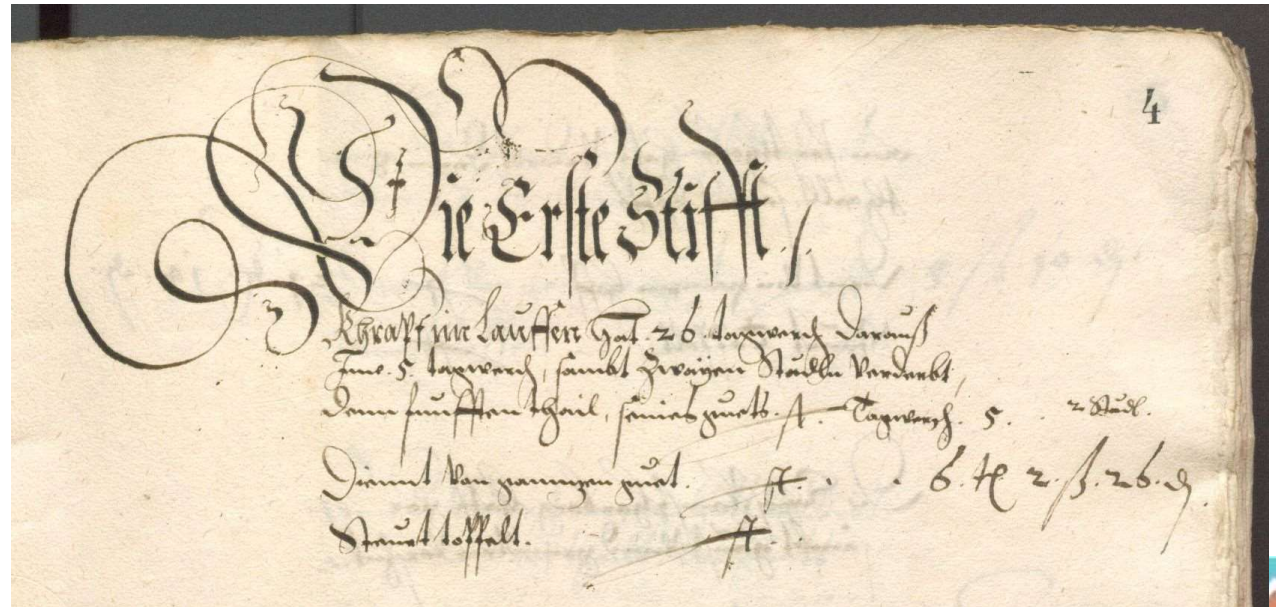 4
Die Erste Stifft.
Khrapf im Lauffen hat . 26 . tagwerch darauß
Ime . 5 . tagwerch, sambt Zwayen Städln verderbt,
dem funfften thail, seines guets . Tagwerch . 5 . 2 Städl.
Diennt von ganntzen guet . 6 . 2 . ß . 26 .
Steurt toppelt .